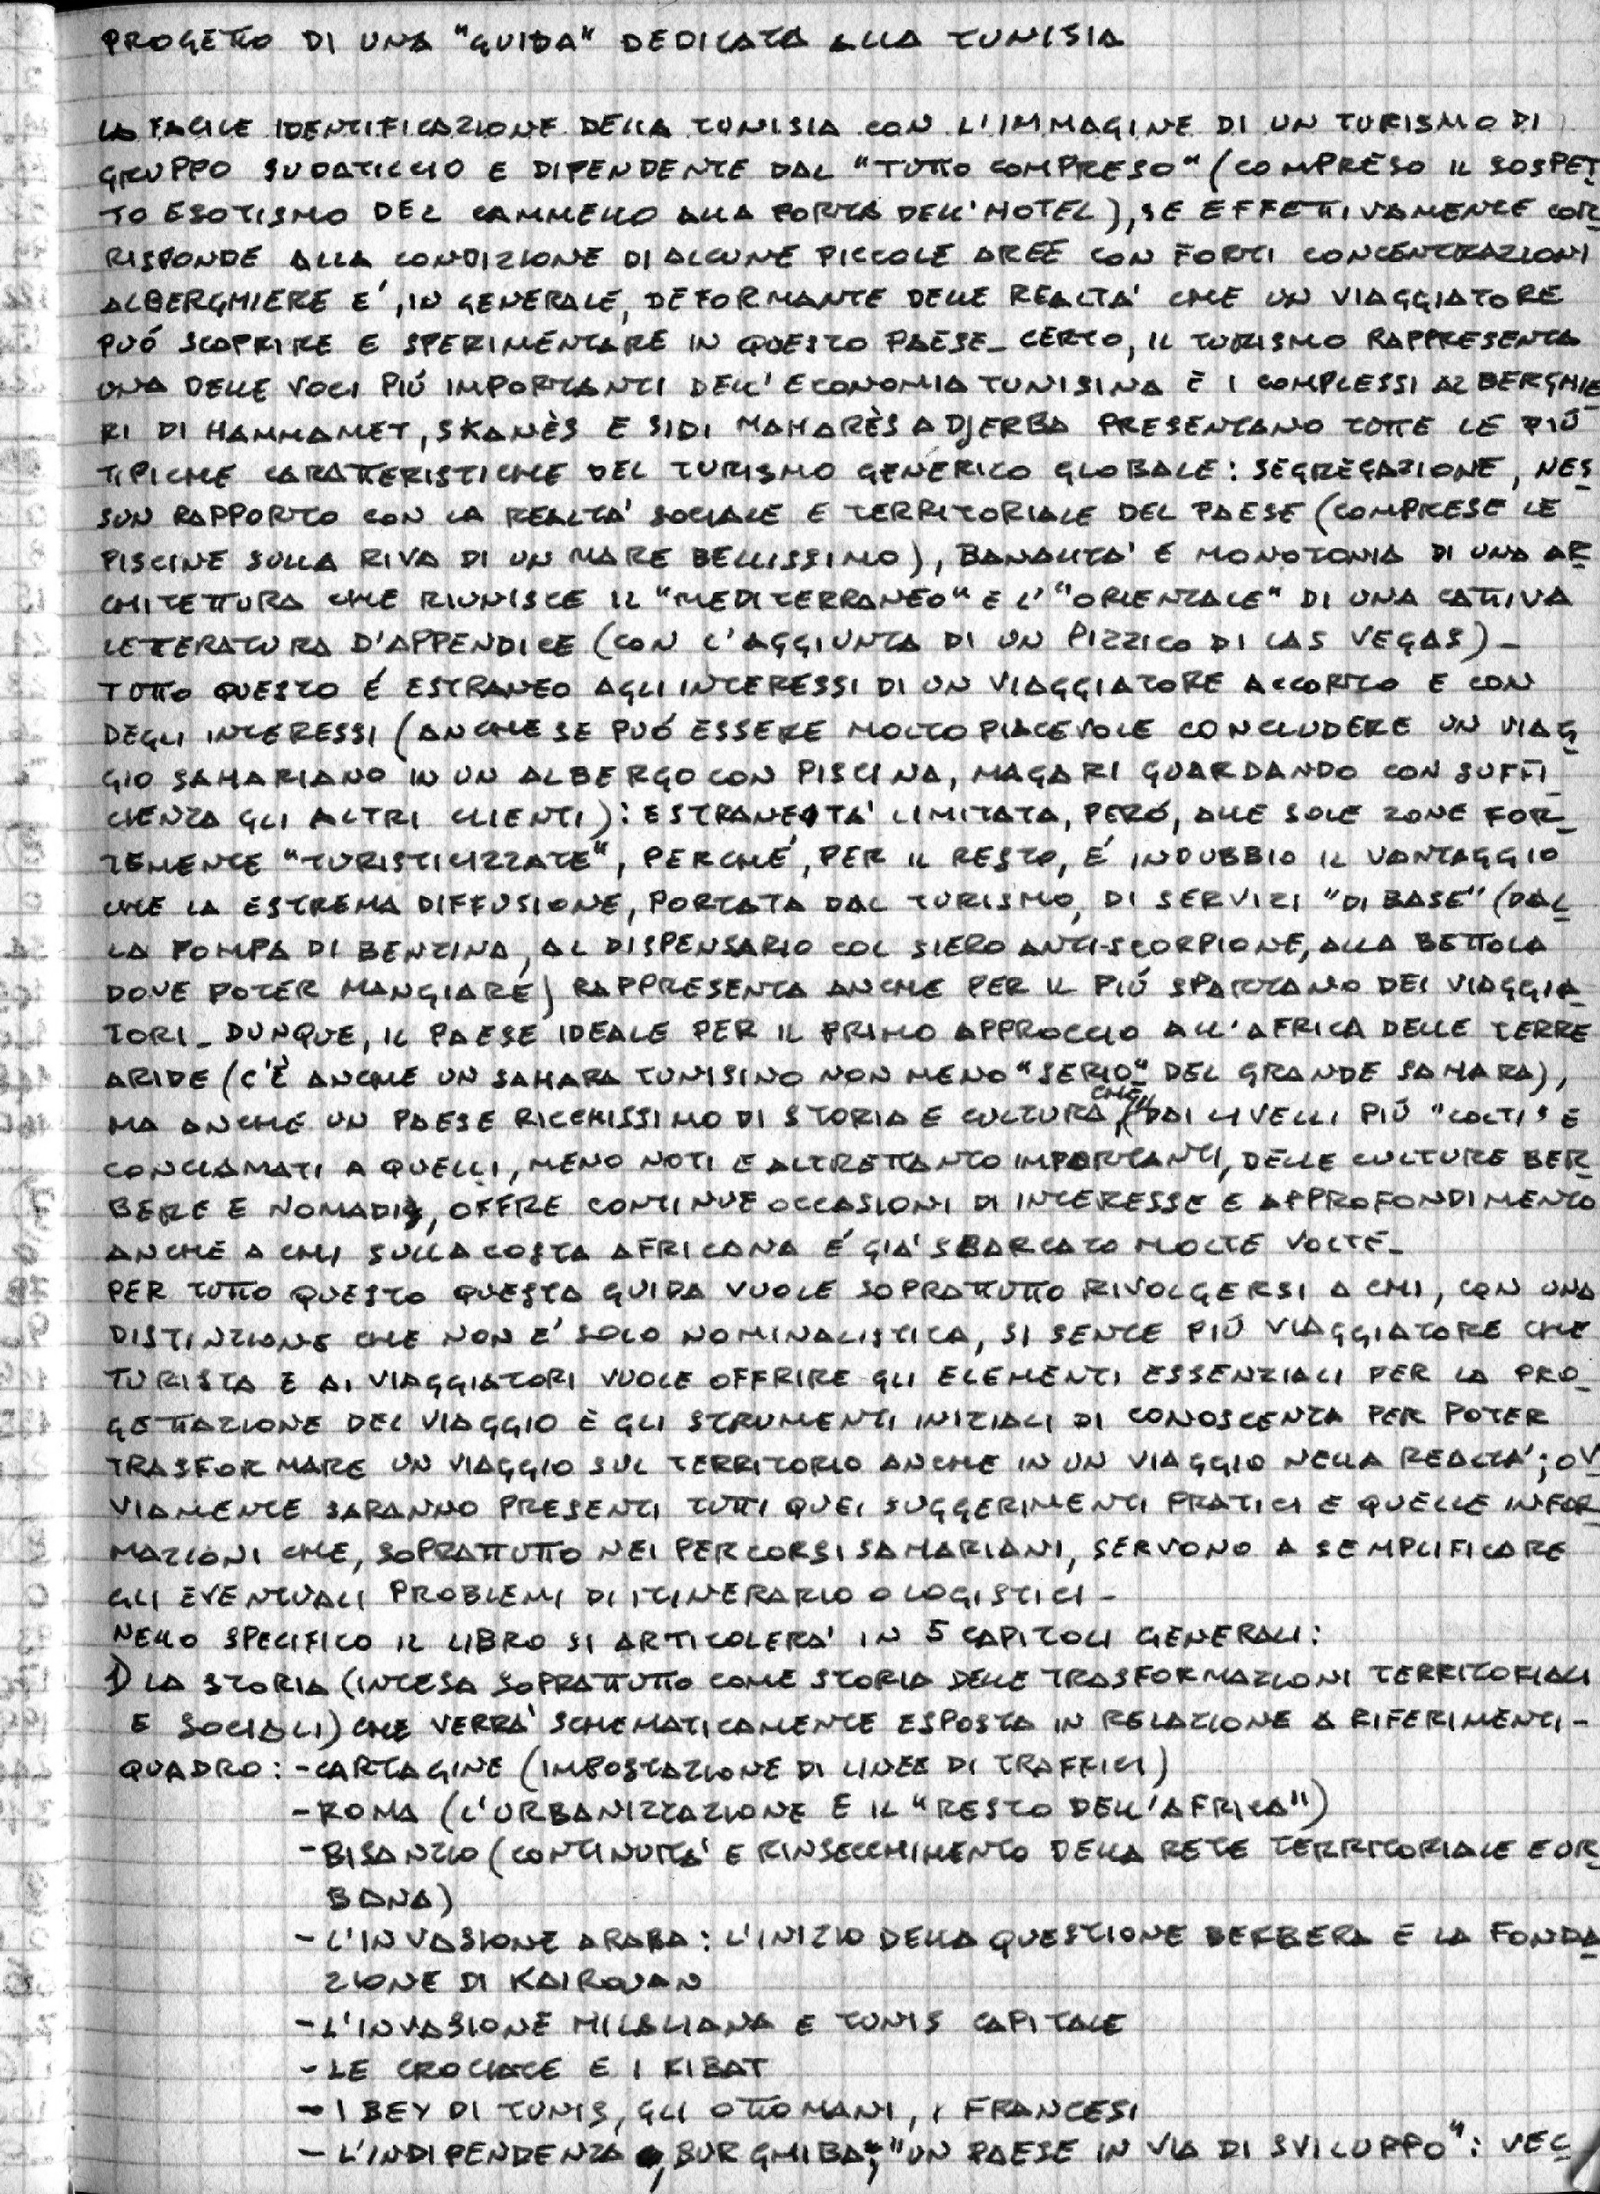 PROGETTO DI UNA "GUIDA" DEDICATA ALLA TUNISIA
LA FACILE IDENTIFICAZIONE DELLA TUNISIA CON L'IMMAGINE DI UN TURISMO DI
GRUPPO SUDATICCIO E DIPENDENTE DAL "TUTTO COMPRESO" (COMPRESO IL SOSPET
TO ESOTISMO DEL CAMMELLO ALLA PORTA DELL'HOTEL), SE EFFETTIVAMENTE COR
RISPONDE ALLA CONDIZIONE DI ALCUNE PICCOLE AREE CON FORTI CONCENTRAZIONI
ALBERGHIERE E', IN GENERALE, DEFORMANTE DELLE REALTA' CHE UN VIAGGIATORE
PUÓ SCOPRIRE E SPERIMENTARE IN QUESTO PAESE_ CERTO, IL TURISMO RAPPRESENTA
UNA DELLE VOCI PIÚ IMPORTANTI DELL'ECONOMIA TUNISINA E I COMPLESSI ALBERGHIE
RI DI HAMMAMET, SKANÈS E SIDI MAHARÈS A DJERBA PRESENTANO TUTTE LE PIÚ
TIPICHE CARATTERISTICHE DEL TURISMO GENERICO GLOBALE: SEGREGAZIONE, NES
SUN RAPPORTO CON LA REALTA' SOCIALE E TERRITORIALE DEL PAESE (COMPRESE LE
PISCINE SULLA RIVA DI UN MARE BELLISSIMO), BANALITA' E MONOTONIA DI UNA AR
CHITETTURA CHE RIUNISCE IL "MEDITERRANEO" E L'"ORIENTALE" DI UNA CATTIVA
LETTERATURA D'APPENDICE (CON L'AGGIUNTA DI UN PIZZICO DI LAS VEGAS)_
TUTTO QUESTO É ESTRANEO AGLI INTERESSI DI UN VIAGGIATORE ACCORTO E CON
DEGLI INTERESSI (ANCHE SE PUÓ ESSERE MOLTO PIACEVOLE CONCLUDERE UN VIAG
GIO SAHARIANO IN UN ALBERGO CON PISCINA, MAGARI GUARDANDO CON SUFFI
CIENZA GLI ALTRI CLIENTI): ESTRANEITA' LIMITATA, PERÓ, ALLE SOLE ZONE FOR_
TEMENTE "TURISTICIZZATE", PERCHÉ, PER IL RESTO, É INDUBBIO IL VANTAGGIO
CHE LA ESTREMA DIFFUSIONE, PORTATA DAL TURISMO, DI SERVIZI "DI BASE" (DAL
LA POMPA DI BENZINA, AL DISPENSARIO COL SIERO ANTI-SCORPIONE, ALLA BETTOLA
DOVE POTER MANGIARE) RAPPRESENTA ANCHE PER IL PIÚ SPARTANO DEI VIAGGIA
TORI_ DUNQUE, IL PAESE IDEALE PER IL PRIMO APPROCCIO ALL'AFRICA DELLE TERRE
ARIDE (C'È ANCHE UN SAHARA TUNISINO NON MENO "SERIO" DEL GRANDE SAHARA),
MA ANCHE UN PAESE RICCHISSIMO DI STORIA E CULTURA CHE, DAI LIVELLI PIÚ "COLTI" E
CONCLAMATI A QUELLI, MENO NOTI E ALTRETTANTO IMPORTANTI, DELLE CULTURE BER
BERE E NOMADI, OFFRE CONTINUE OCCASIONI DI INTERESSE E APPROFONDIMENTO
ANCHE A CHI SULLA COSTA AFRICANA É GIA' SBARCATO MOLTE VOLTE_
PER TUTTO QUESTO QUESTA GUIDA VUOLE SOPRATTUTTO RIVOLGERSI A CHI, CON UNA
DISTINZIONE CHE NON E' SOLO NOMINALISTICA, SI SENTE PIÚ VIAGGIATORE CHE
TURISTA E AI VIAGGIATORI VUOLE OFFRIRE GLI ELEMENTI ESSENZIALI PER LA PRO_
GETTAZIONE DEL VIAGGIO E GLI STRUMENTI INIZIALI DI CONOSCENZA PER POTER
TRASFORMARE UN VIAGGIO SUL TERRITORIO ANCHE IN UN VIAGGIO NELLA REALTA'; OV
VIAMENTE SARANNO PRESENTI TUTTI QUEI SUGGERIMENTI PRATICI E QUELLE INFOR
MAZIONI CHE, SOPRATTUTTO NEI PERCORSI SAHARIANI, SERVONO A SEMPLIFICARE
GLI EVENTUALI PROBLEMI DI ITINERARIO O LOGISTICI_
NELLO SPECIFICO IL LIBRO SI ARTICOLERA' IN 5 CAPITOLI GENERALI:
1) LA STORIA (INTESA SOPRATTUTTO COME STORIA DELLE TRASFORMAZIONI TERRITORIALI
E SOCIALI) CHE VERRA' SCHEMATICAMENTE ESPOSTA IN RELAZIONE A RIFERIMENTI-
QUADRO: - CARTAGINE (IMPOSTAZIONE DI LINEE DI TRAFFICI)
- ROMA (L'URBANIZZAZIONE E IL "RESTO DELL'AFRICA")
- BISANZIO (CONTINUITA' E RINSECCHIMENTO DELLA RETE TERRITORIALE E UR
BANA)
- L'INVASIONE ARABA: L'INIZIO DELLA QUESTIONE BERBERA E LA FONDA
ZIONE DI KAIROUAN
- L'INVASIONE HILALIANA E TUNIS CAPITALE
- LE CROCIATE E I RIBAT
- I BEY DI TUNIS, GLI OTTOMANI, I FRANCESI
- L'INDIPENDENZA, BURGHIBA; "UN PAESE IN VIA DI SVILUPPO": VEC